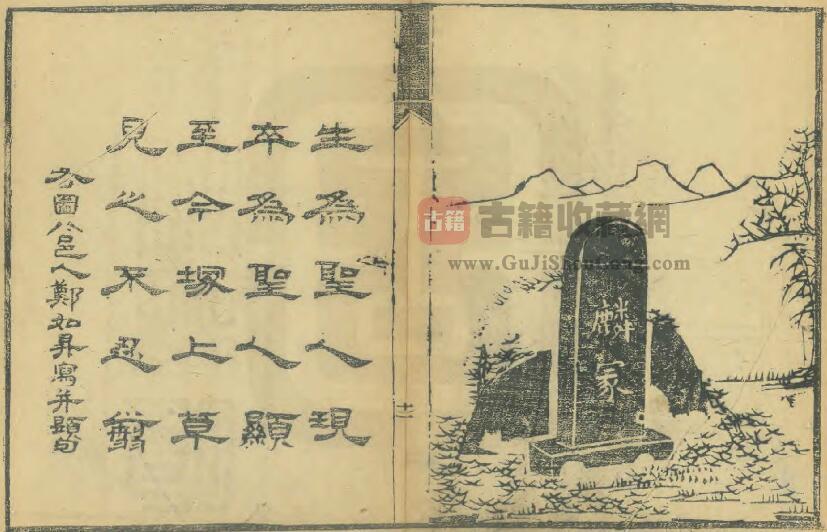 麟冢
古籍
古籍收藏網
www.GuJiShouCang.com
十二
生為聖人現
卒為聖人顯
至今塚上草
見之不忍翦
圖邑人鄭如昇寫并題句